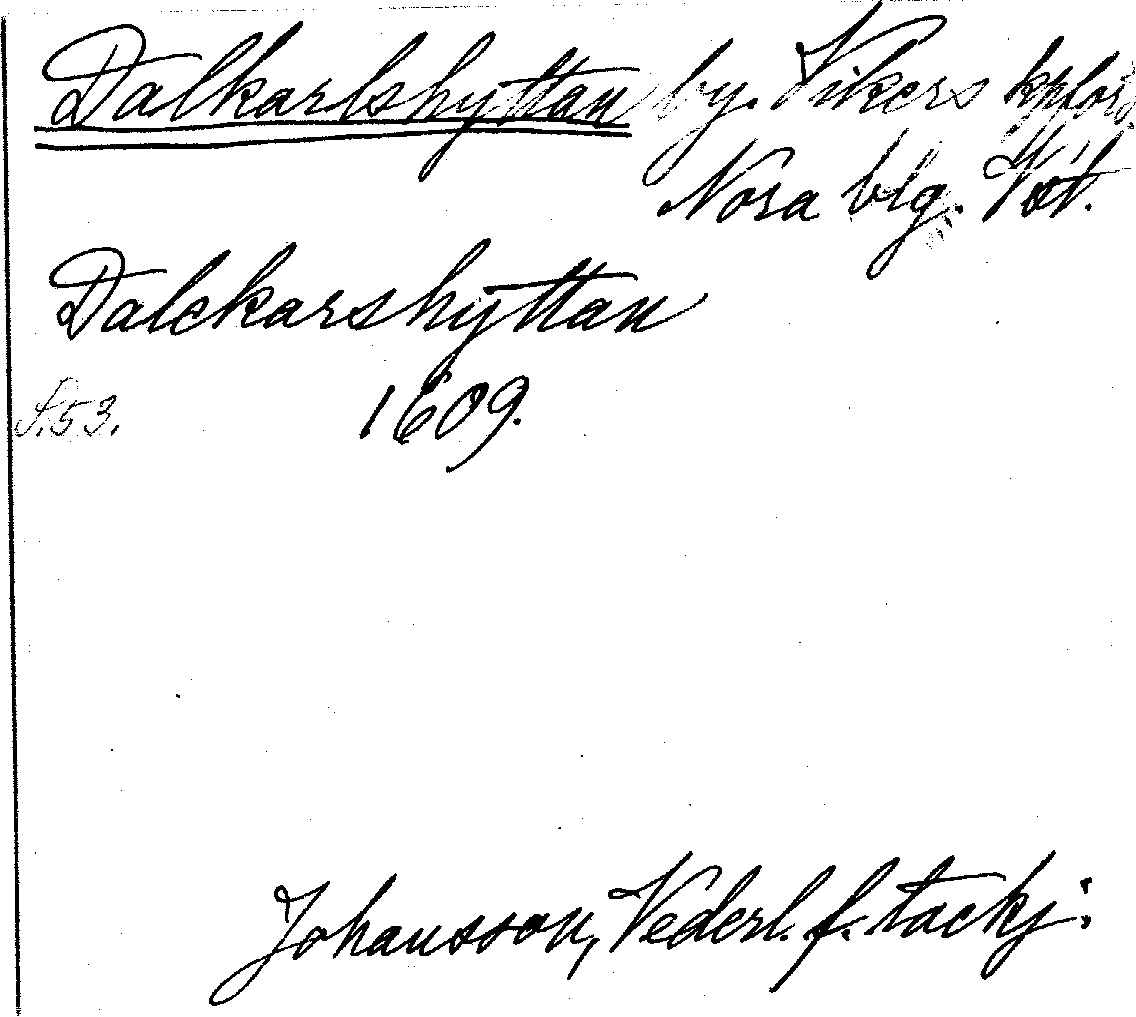 Dalkarlshyttan by. Vikers kpförs.
Nora blg. Vstl.
Dalckarshyttan
S. 53. 1609.
Johansson, Vederl. f. tackj: